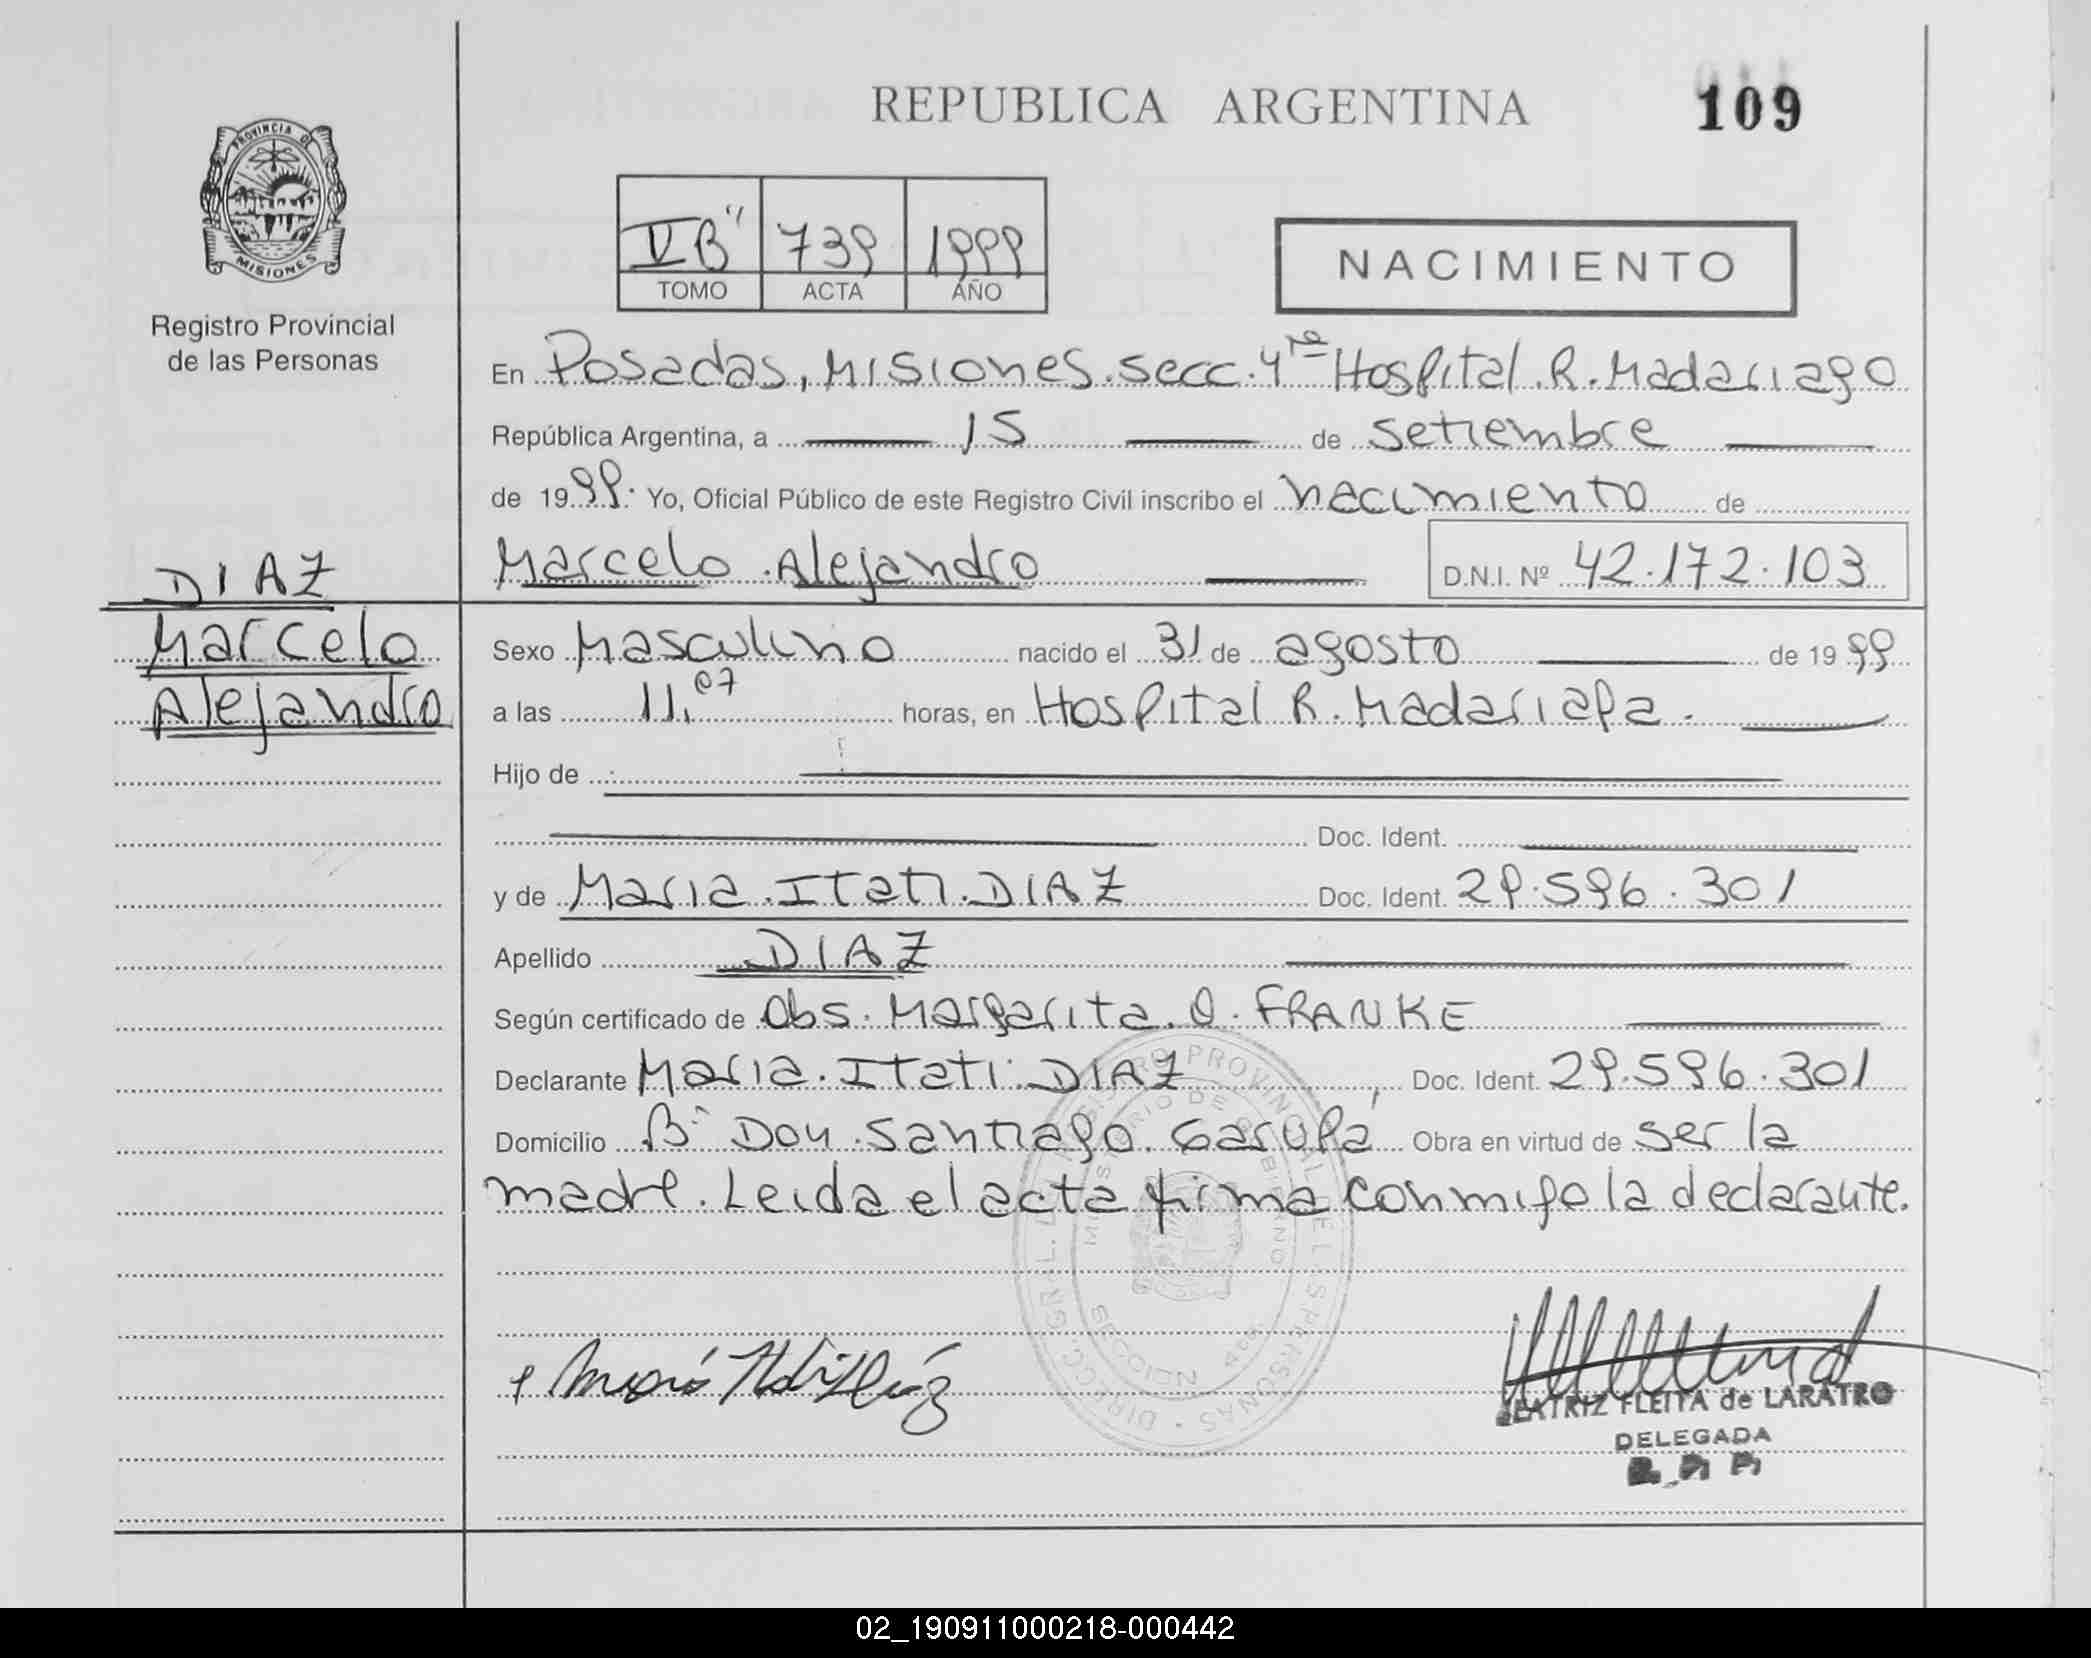 REPUBLICA ARGENTINA
109
PROVINCIA DE MISIONES
Registro Provincial
de las Personas
V B" 739 1999
TOMO ACTA AÑO
NACIMIENTO
En Posadas, Misiones. secc. 4ta Hospital. R. Madariago
República Argentina, a 15 de setiembre
de 1999. Yo, Oficial Público de este Registro Civil inscribo el nacimiento de
Marcelo Alejandro D.N.I. Nº 42.172.103
DIAZ
Marcelo
Alejandro
Sexo Masculino nacido el 31 de agosto de 1999
a las 11,07 horas, en Hospital R. Madariaga.
Hijo de
Doc. Ident.
y de Maria Itati DIAZ Doc. Ident. 29.596.301
Apellido DIAZ
Según certificado de Obs. Margarita. O. FRANKE
Declarante Maria Itati DIAZ, Doc. Ident. 29.596.301
Domicilio Bº Don Santiago. Garupá Obra en virtud de ser la
madre. Leida el acta firma conmigo la declarante.
DIRECC. GRAL. DEL REGISTRO PROVINCIAL DE LAS PERSONAS
MINISTERIO DE GOBIERNO
SECCION
Maria Itati Diaz
BEATRIZ FLEITA de LARATRO
DELEGADA
02_190911000218-000442